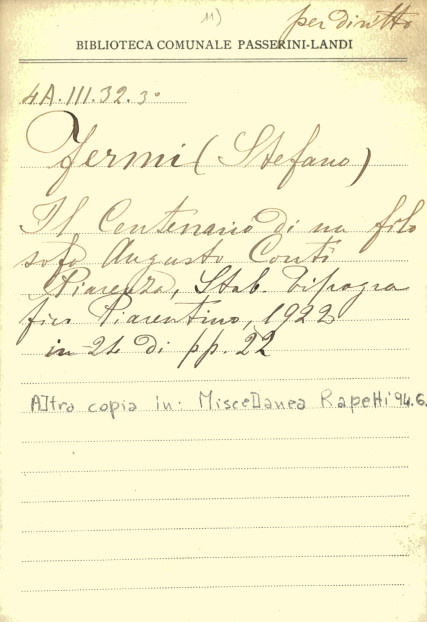 11)
per diritto
BIBLIOTECA COMUNALE PASSERINI-LANDI
4A.III.32.3°
Fermi (Stefano)
Il Centenario di un filo
sofo Augusto Conti
Piacenza, Stab. Tipogra
fico Piacentino, 1922
in 24 di pp. 22
Altra copia in: Miscellanea Rapetti 94.6.